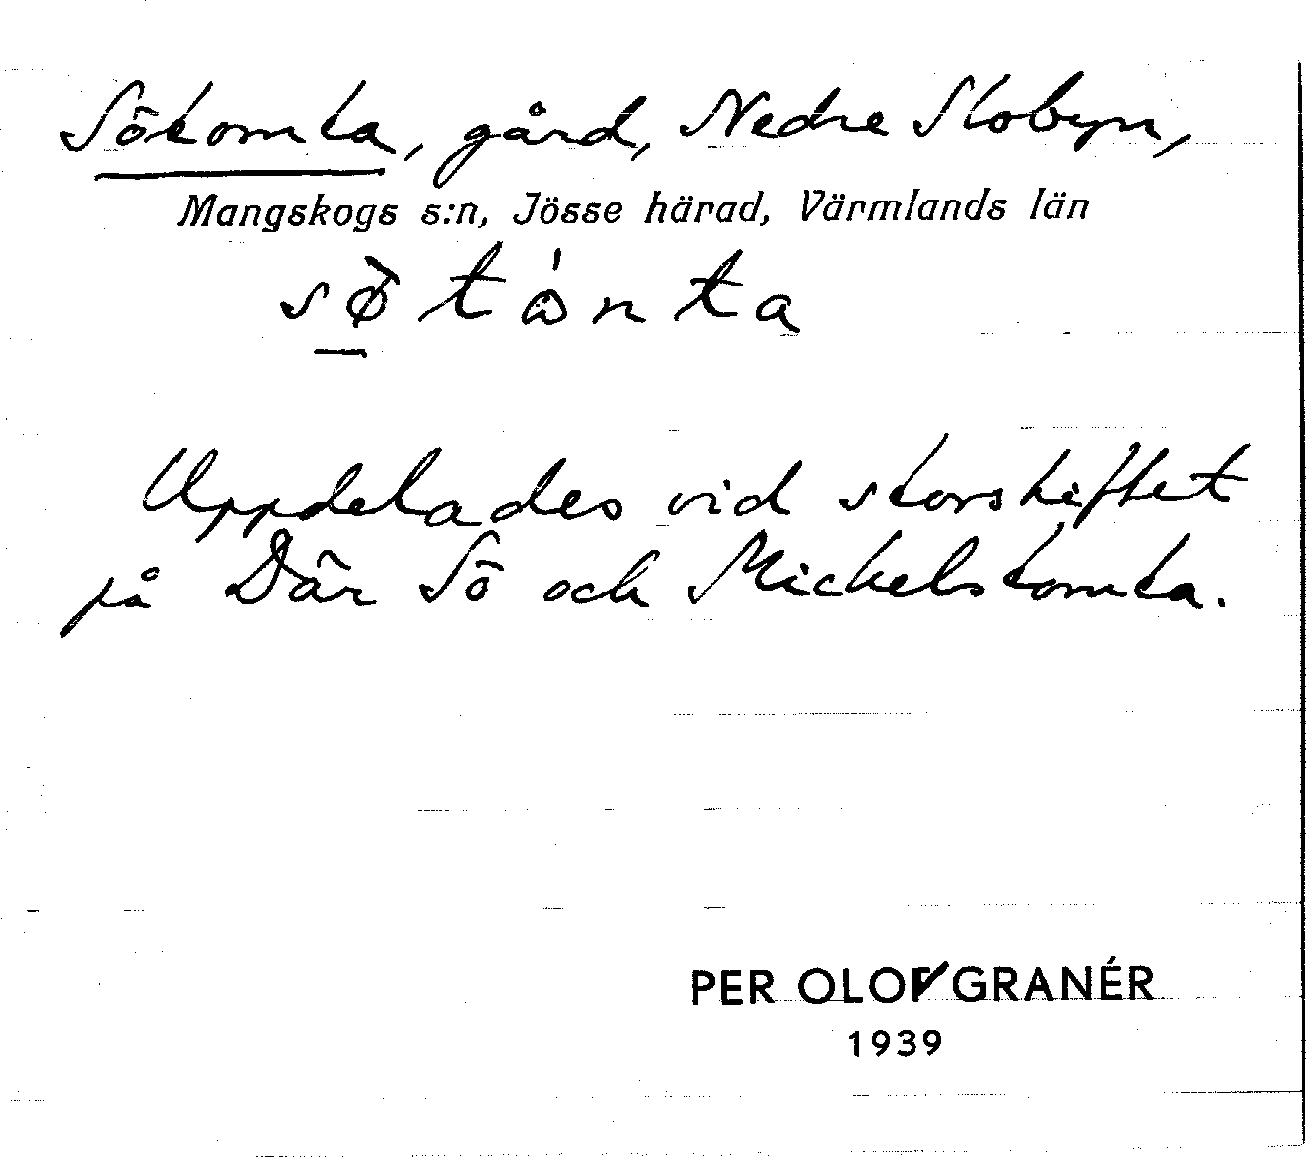 Sötomta, gård, Nedre Slobyn,
Mangskogs s:n, Jösse härad, Värmlands län
Uppdelades vid storskiftet
på Där Sö och Mickelstomta.
PER OLOF GRANÉR
1939